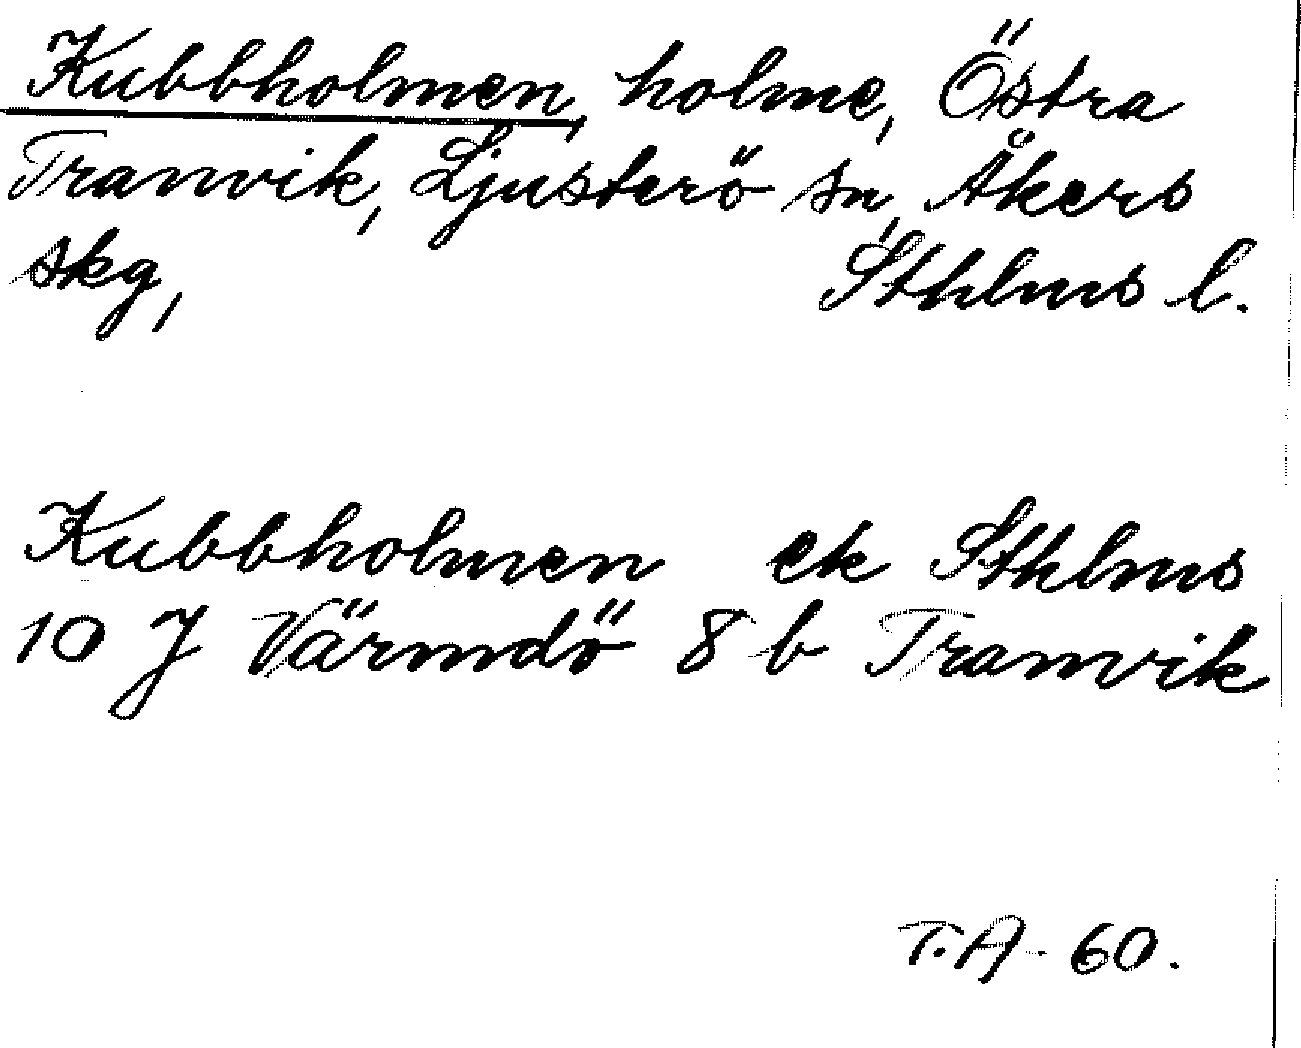 Kubbholmen, holme, Östra
Tranvik, Ljusterö sn, Åkers
skg, Sthlms l.
Kubbholmen ek Sthlms
10 J Värmdö 8 b Tranvik
T.A- 60.